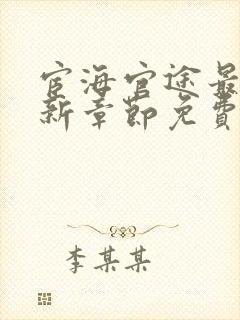 宦海官途最
新章节免费
李某某